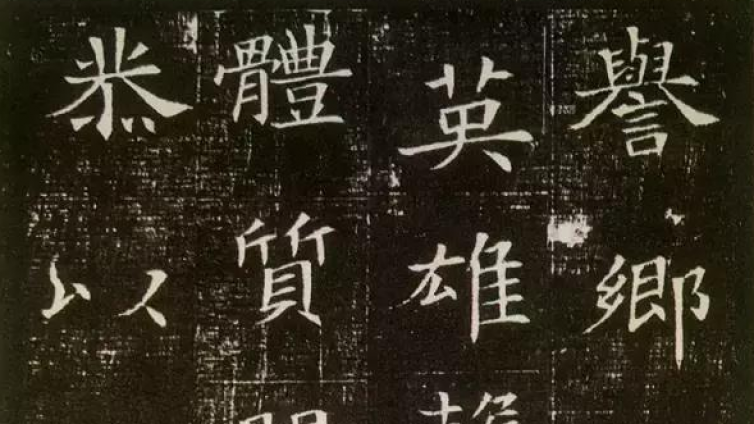 譽鄉
英雄
體質
恭以